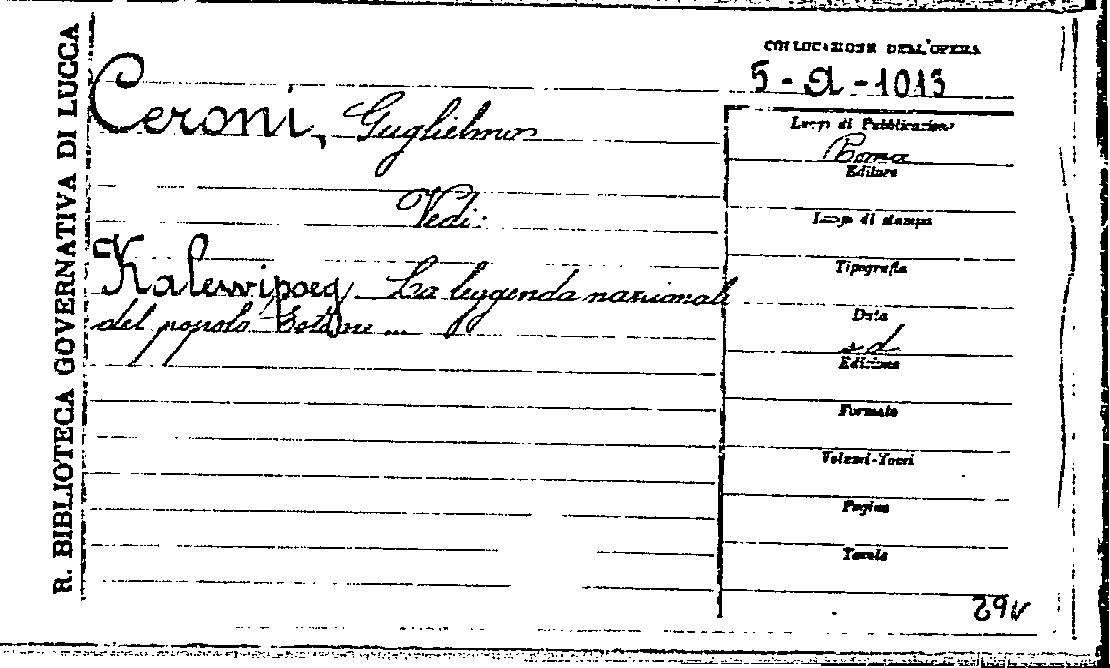 R. BIBLIOTECA GOVERNATIVA DI LUCCA
COLLOCAZIONE DELL'OPERA
5-A-1013
Ceroni, Guglielmo
Vedi:
Kalewipoeg La leggenda nazionale
del popolo Estone ...
Luogo di Pubblicazione
Roma
Editore
Luogo di stampa
Tipografia
Data
s d
Edizione
Formato
Volumi-Tomi
Pagine
Tavole